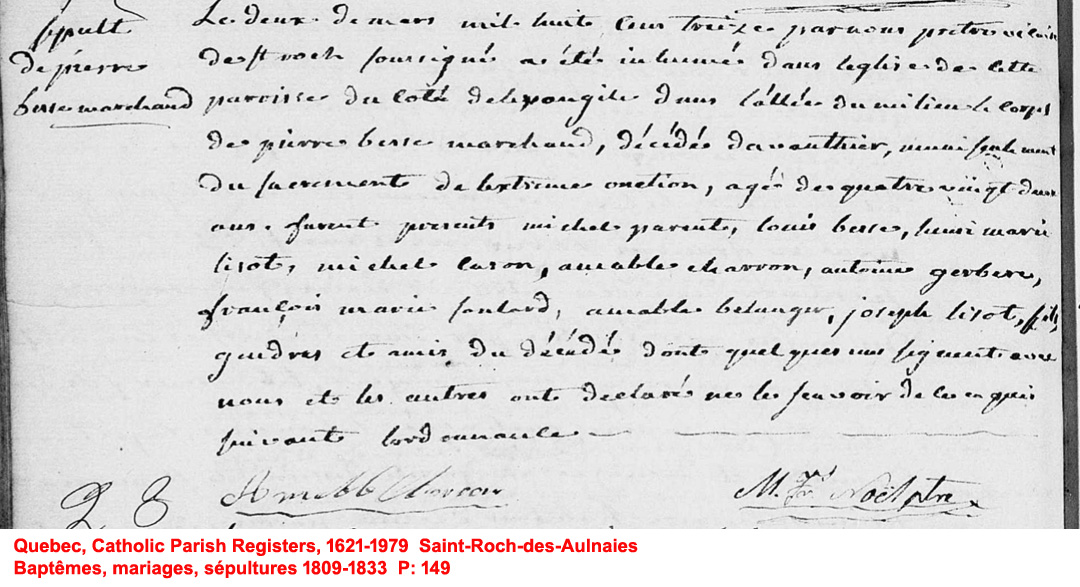 sepult
de pierre
besse marchand
Le deux de mars mil huit cens treize par nous pretre vicaire
de st roch soussigné a été inhumé dans leglise de cette
paroisse du coté de lepongile dans l'allée du milieu le corps
de pierre besse marchand, décédé davanthier, muni seulement
du sacrement de lextreme onction, agé de quatre vingt deux
ans. furent presents michel parent, louis besse, marie
lisot, michel caron, amable charron, antoine gerbere,
françois marie soulard, amable belanger, joseph lisot, fils,
gendres et amis du décédé dont quelques uns signent avec
nous et les autres ont declaré ne le scavoir de ce enquis
suivant lordonnance
Amable Charon
M. Fr. Noël ptre
Quebec, Catholic Parish Registers, 1621-1979 Saint-Roch-des-Aulnaies
Baptêmes, mariages, sépultures 1809-1833 P: 149